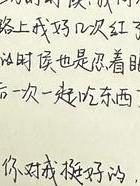 的时候
路上我好几次红了
的时候也是忍着眼
后一次一起吃东西了
你对我挺好的